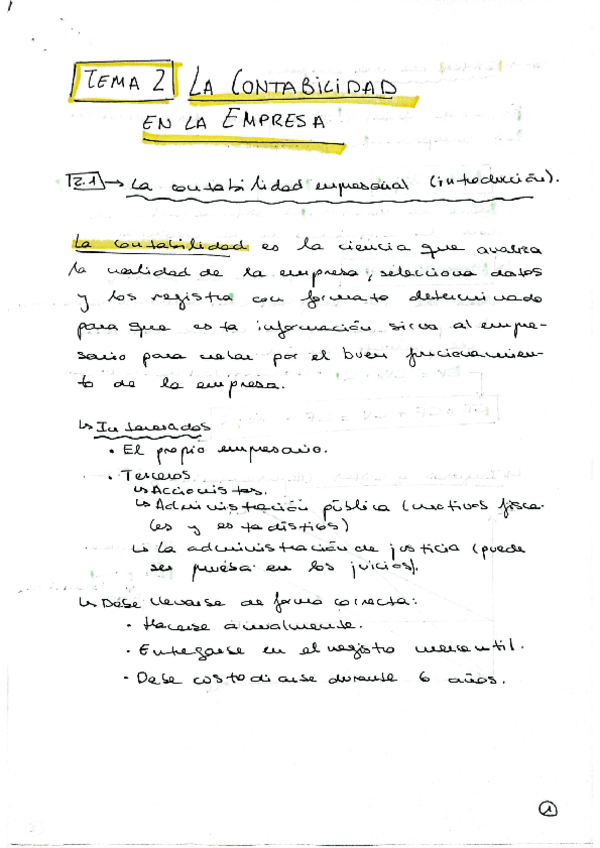 TEMA 2 LA CONTABILIDAD
EN LA EMPRESA
2.1 → La contabilidad empresarial (introducción).
La contabilidad es la ciencia que analiza
la realidad de la empresa, selecciona datos
y los registra con formato determinado
para que esta información sirva al empre-
sario para velar por el buen funcionamien-
to de la empresa.
↳ Interesados
• El propio empresario.
• Terceros
↳ Accionistas.
↳ Administración pública (motivos fisca-
les y estadísticos)
↳ La administración de justicia (puede
ser prueba en los juicios).
↳ Debe llevarse de forma correcta:
• Hacerse anualmente.
• Entregarse en el registro mercantil.
• Debe custodiarse durante 6 años.
1